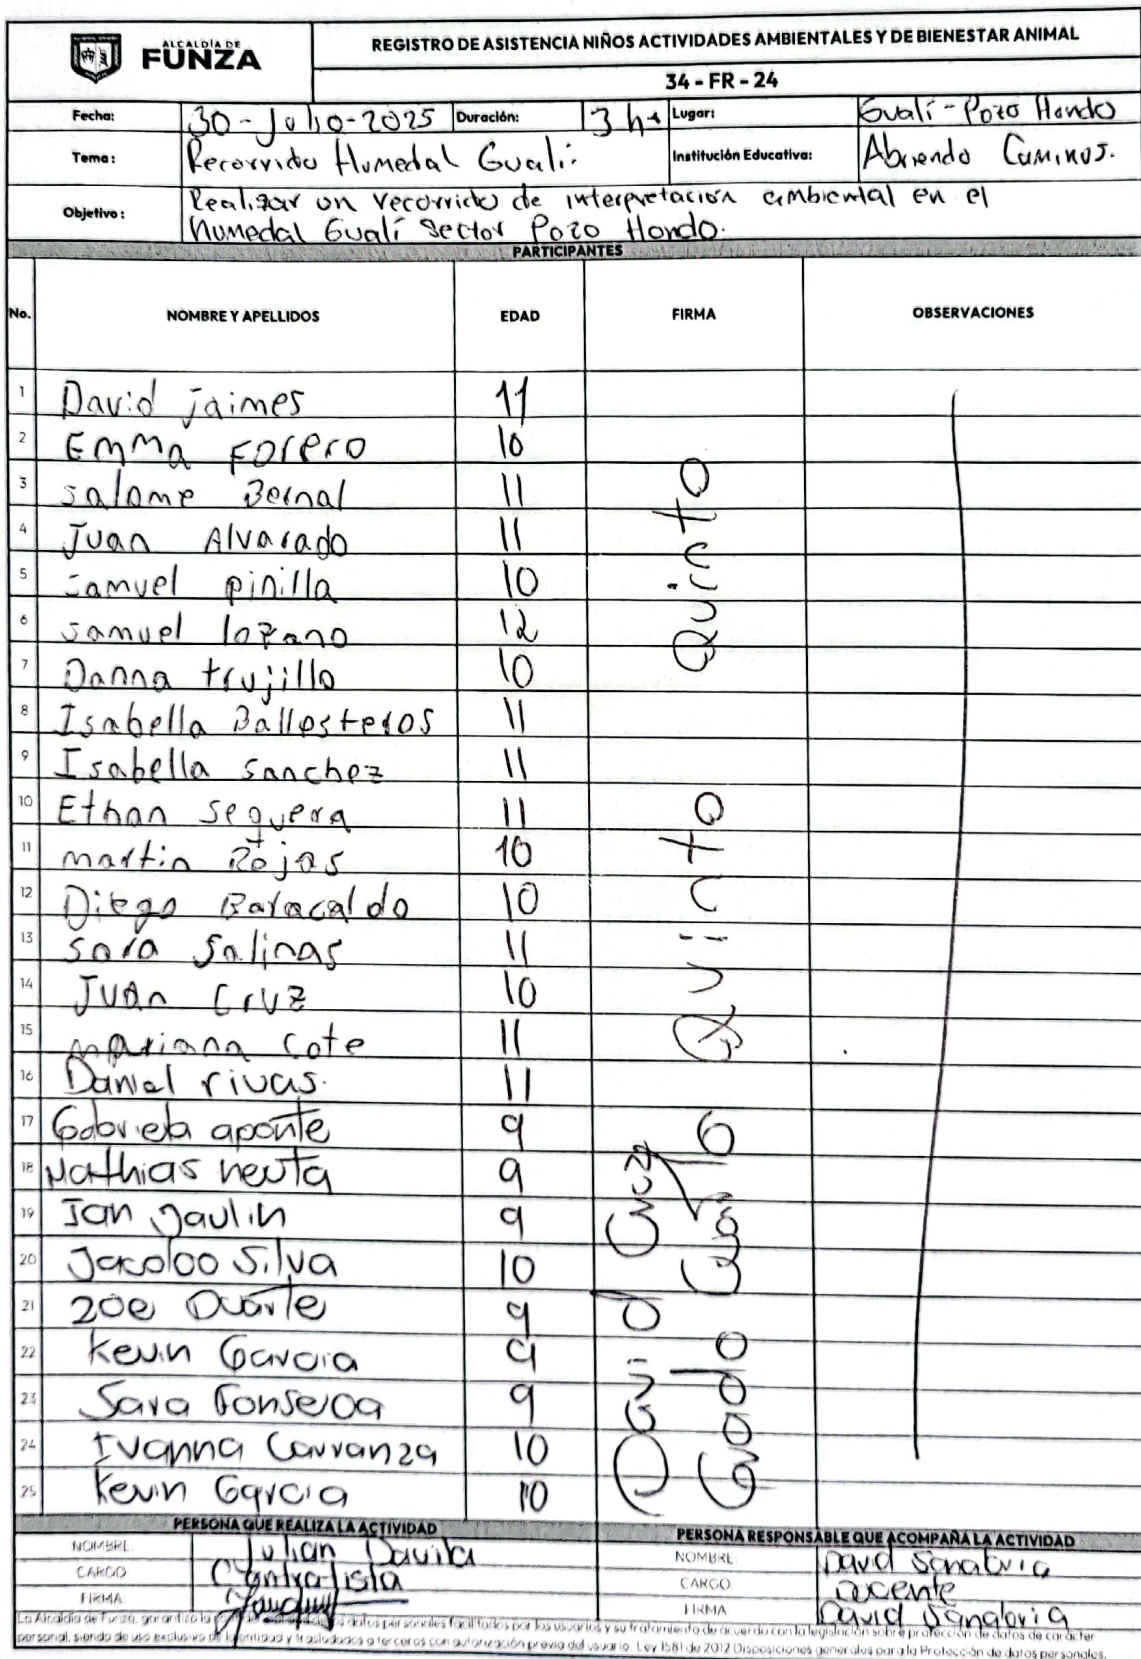 ALCALDÍA DE
FUNZA
REGISTRO DE ASISTENCIA NIÑOS ACTIVIDADES AMBIENTALES Y DE BIENESTAR ANIMAL
34 - FR - 24
Fecha: 30-Julio-2025 Duración: 3 hs Lugar: Gualí-Pozo Hondo
Tema: Recorrido Humedal Gualí. Institución Educativa: Abriendo Caminos.
Objetivo: Realizar un recorrido de interpretación ambiental en el
humedal Gualí Sector Pozo Hondo.
PARTICIPANTES
No. NOMBRE Y APELLIDOS EDAD FIRMA OBSERVACIONES
1 David jaimes 11
2 Emma Forero 10
3 salome Bernal 11
4 Juan Alvarado 11
5 samuel pinilla 10
6 samuel lozano 12
7 Danna trujillo 10
8 Isabella Ballesteros 11
9 Isabella sanchez 11
10 Ethan sequera 11
11 martin Rojas 10
12 Diego Baracaldo 10
13 sara salinas 11
14 Juan Cruz 10
15 mariana cote 11
16 Daniel rivas. 11
17 Gabriela aponte 9
18 Mathias neuta 9
19 Ian Gaulin 9
20 Jacobo Silva 10
21 zoe Duarte 9
22 Kevin Garcia 9
23 Sara Fonseca 9
24 Ivanna Carranza 10
25 Kevin Garcia 10
Quinto
Quinto
David Cruz
Grado
PERSONA QUE REALIZA LA ACTIVIDAD PERSONA RESPONSABLE QUE ACOMPAÑA LA ACTIVIDAD
NOMBRE: Julian Davila NOMBRE: David Sanabria
CARGO Contratista CARGO Docente
FIRMA FIRMA David Sanabria
La Alcaldía de Funza, garantiza la de los datos personales facilitados por los usuarios y su tratamiento de acuerdo con la legislación sobre protección de datos de carácter
personal, siendo de uso exclusivo de la entidad y trasladados a terceros con autorización previa del usuario. Ley 1581 de 2012 Disposiciones generales para la Protección de datos personales.